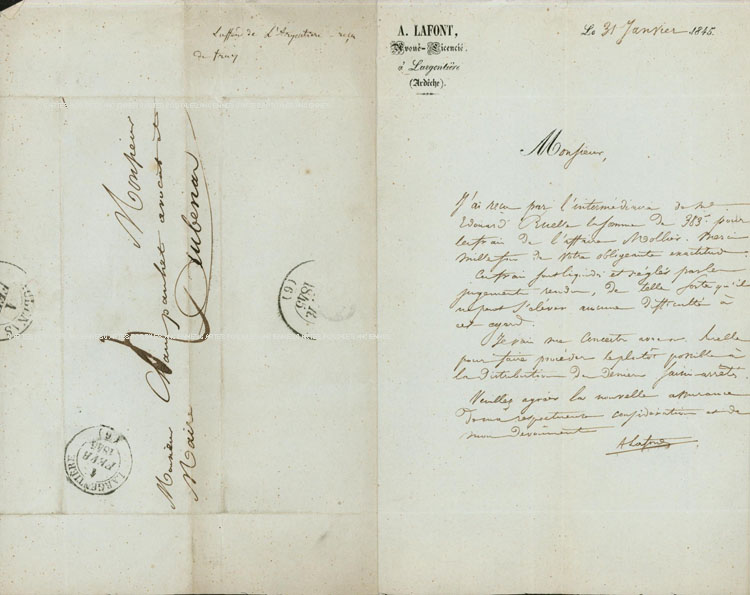 Laffon de L'Argentière reçu
de frais
Monsieur
Monsieur Champanhet avocat et
Maire Aubenas
LARGENTIÈRE
1
FEVR
1845
(6)
A. LAFONT,
Avoué-Licencié
à Largentière
(Ardèche).
Le 31 Janvier 1845.
Monsieur,
J'ai reçu par l'intermédiaire de Me
Edouard Ruelle la somme de 383f pour
les frais de l'affaire Mollier. Merci
mille fois de votre obligeante exactitude.
Ces frais sont liquidés et réglés par le
jugement rendu, de telle sorte qu'il
ne peut s'élever aucune difficulté à
cet égard.
Je vais me concerter avec Me Ruelle
pour faire procéder le plutôt possible à
la distribution des deniers saisis-arrêtés.
Veuillez agréer la nouvelle assurance
de ma respectueuse considération et de
mon dévouement
ALafont